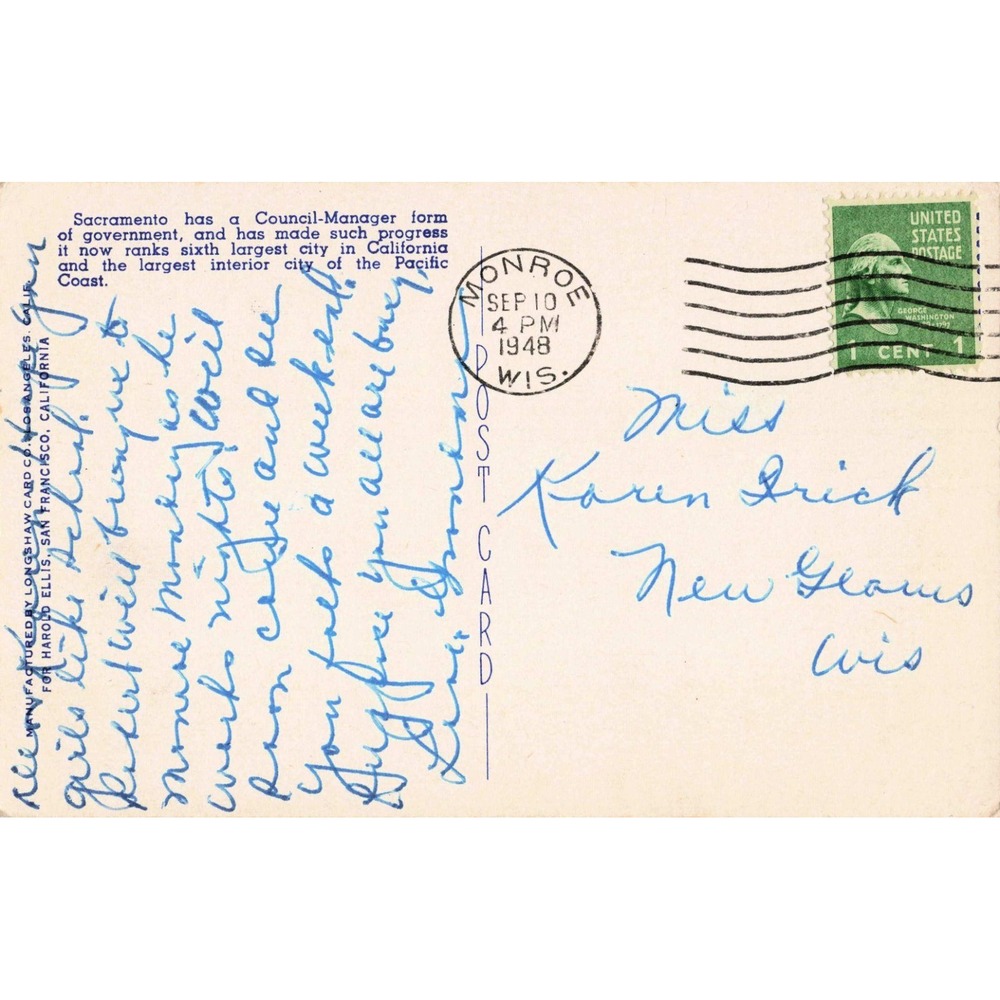 Sacramento has a Council-Manager form
of government, and has made such progress
it now ranks sixth largest city in California
and the largest interior city of the Pacific
Coast.
MANUFACTURED BY LONGSHAW CARD CO. LOS ANGELES. CALIF.
FOR HAROLD ELLIS, SAN FRANCISCO, CALIFORNIA
POST CARD
MONROE
SEP 10
4 PM
1948
WIS.
UNITED
STATES
POSTAGE
GEORGE
WASHINGTON
1 CENT 1
Miss
Karen Frick
New Glarus
Wis
you
girls like school.
Robert will bring me to
Monroe Monday as he
works nights. I will
soon call and see
you folks a weekend.
Suppose you all are busy,
Love, Grandma